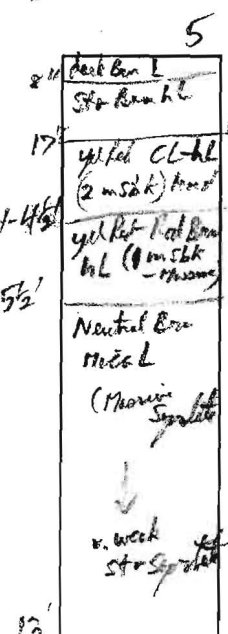 5
8" Dark Brn L
Str Brn hL
17"
yel Red CL-hL
(2 m sbk)
yel Red - Red Brn
hL (1 m sbk
- Massive)
5½'
Neutral Brn
Mica L
(Massive
Saprolite
v. weak
str Saprolite